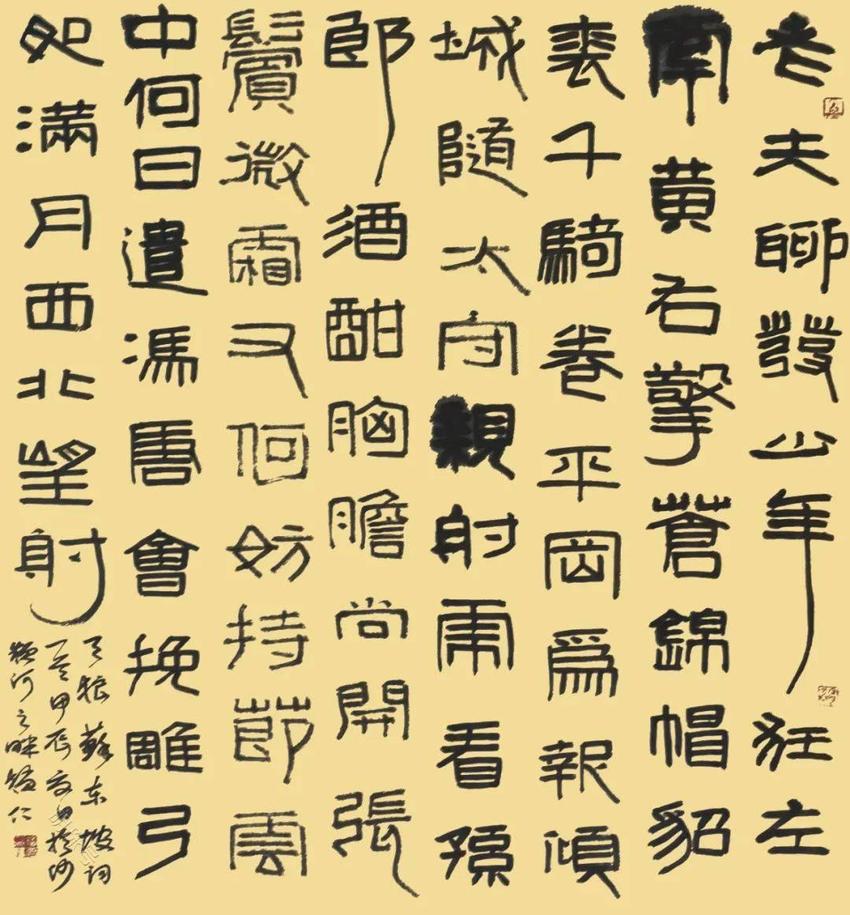 老夫聊發少年狂左
牽黄右擎蒼錦帽貂
裘千騎卷平岡爲報傾
城隨太守親射虎看孫
郎酒酣胸膽尚開張
鬢微霜又何妨持節雲
中何日遣馮唐會挽雕弓
如滿月西北望射
天狼蘇東坡詞
一首甲辰夏日於沙
潁河之畔仁